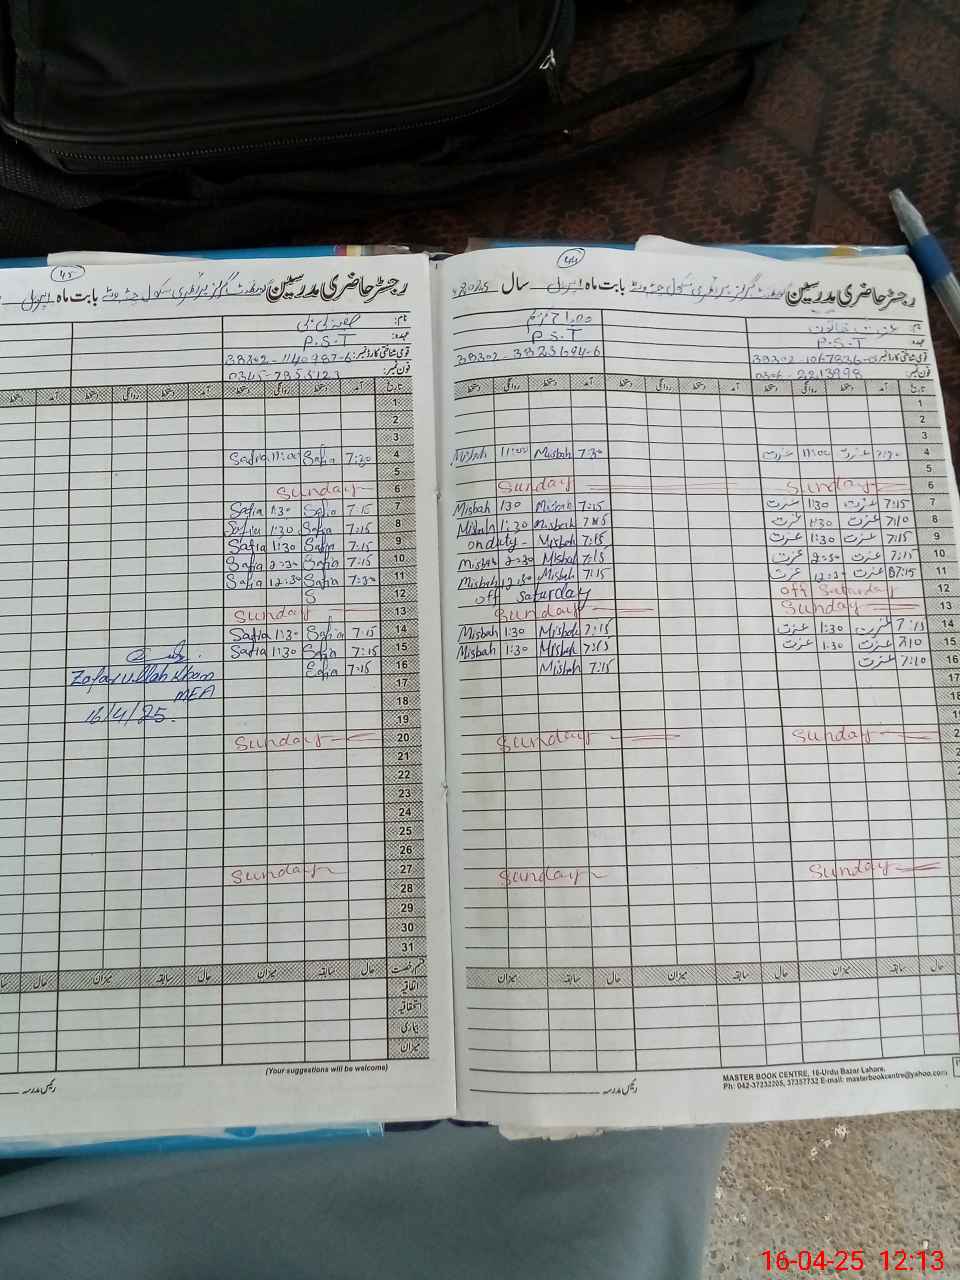 45
رجسٹر حاضری مدرسین گورنمنٹ گرلز پرائمری سکول بابت ماہ اپریل
نام:
عہدہ: P.S.T
قومی شناختی کارڈ نمبر: 38302-1140987-6
فون نمبر: 0345-7855123
تاریخ روانگی دستخط آمد دستخط
1
2
3
4 7:30 Safia 11:00 Safia
5
6 Sunday
7 7:15 Safia 1:30 Safia
8 7:15 Safia 1:30 Safia
9 7:15 Safia 1:30 Safia
10 7:15 Safia 2:30 Safia
11 7:30 Safia 12:30 Safia
12 S
13 Sunday
14 7:15 Safia 1:30 Safia
15 7:15 Safia 1:30 Safia
16 7:15
Zafar ullah Khan
MEA
16/4/25.
17
18
19
20 Sunday
21
22
23
24
25
26
27 Sunday
28
29
30
31
قسم رخصت حال سابقہ میزان حال سابقہ میزان حال
اتفاقیہ
استحقاقیہ
بیماری
میزان
(Your suggestions will be welcome)
رئیس مدرسہ
44
رجسٹر حاضری مدرسین گورنمنٹ گرلز پرائمری سکول بابت ماہ اپریل سال 2025
نام: عزت خاتون
عہدہ: P.S.T P.S.T
قومی شناختی کارڈ نمبر:
فون نمبر: 0306-2213998
تاریخ آمد دستخط روانگی دستخط آمد دستخط روانگی دستخط
1
2
3
4 عزت 11:00 عزت 7:30 Misbah 11:00 Misbah
5
6 Sunday Sunday
7 7:15 عزت 1:30 عزت 7:15 Misbah 1:30 Misbah
8 7:10 عزت 1:30 عزت 7:15 Misbah 1:30 Misbah
9 7:15 عزت 1:30 عزت 7:15 Misbah on duty-
10 7:15 عزت 2:30 عزت 7:15 Misbah 2:30 Misbah
11 7:15 عزت 12:30 عزت 7:15 Misbah 12:30 Misbah
12 off Saturday off Saturday
13 Sunday Sunday
14 7:15 عزت 1:30 عزت 7:15 Misbah 1:30 Misbah
15 7:10 عزت 1:30 عزت 7:15 Misbah 1:30 Misbah
16 7:10 عزت 7:15 Misbah
17
18
19
2 Sunday Sunday
21
22
23
24
25
26
27 Sunday Sunday
28
29
30
31
حال سابقہ میزان حال سابقہ میزان
MASTER BOOK CENTRE, 16-Urdu Bazar Lahore.
Ph: 042-37232205, 37357732 E-mail: masterbookcentre@yahoo.com
رئیس مدرسہ
16-04-25 12:13